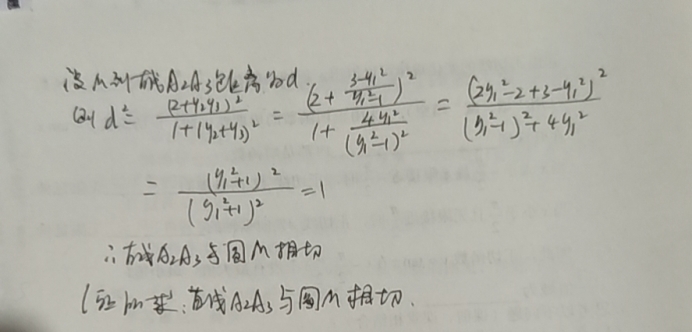 设M到直线A₂A₃的距离为d.
则 d² = (2+y₂y₃)² / (1+(y₂+y₃)²) = (2 + (3-y₁²)/(y₁²-1))² / (1 + 4y₁²/(y₁²-1)²) = (2y₁²-2+3-y₁²)² / ((y₁²-1)²+4y₁²)
= (y₁²+1)² / (y₁²+1)² = 1
∴直线A₂A₃与圆M相切
直线A₂A₃与圆M相切.